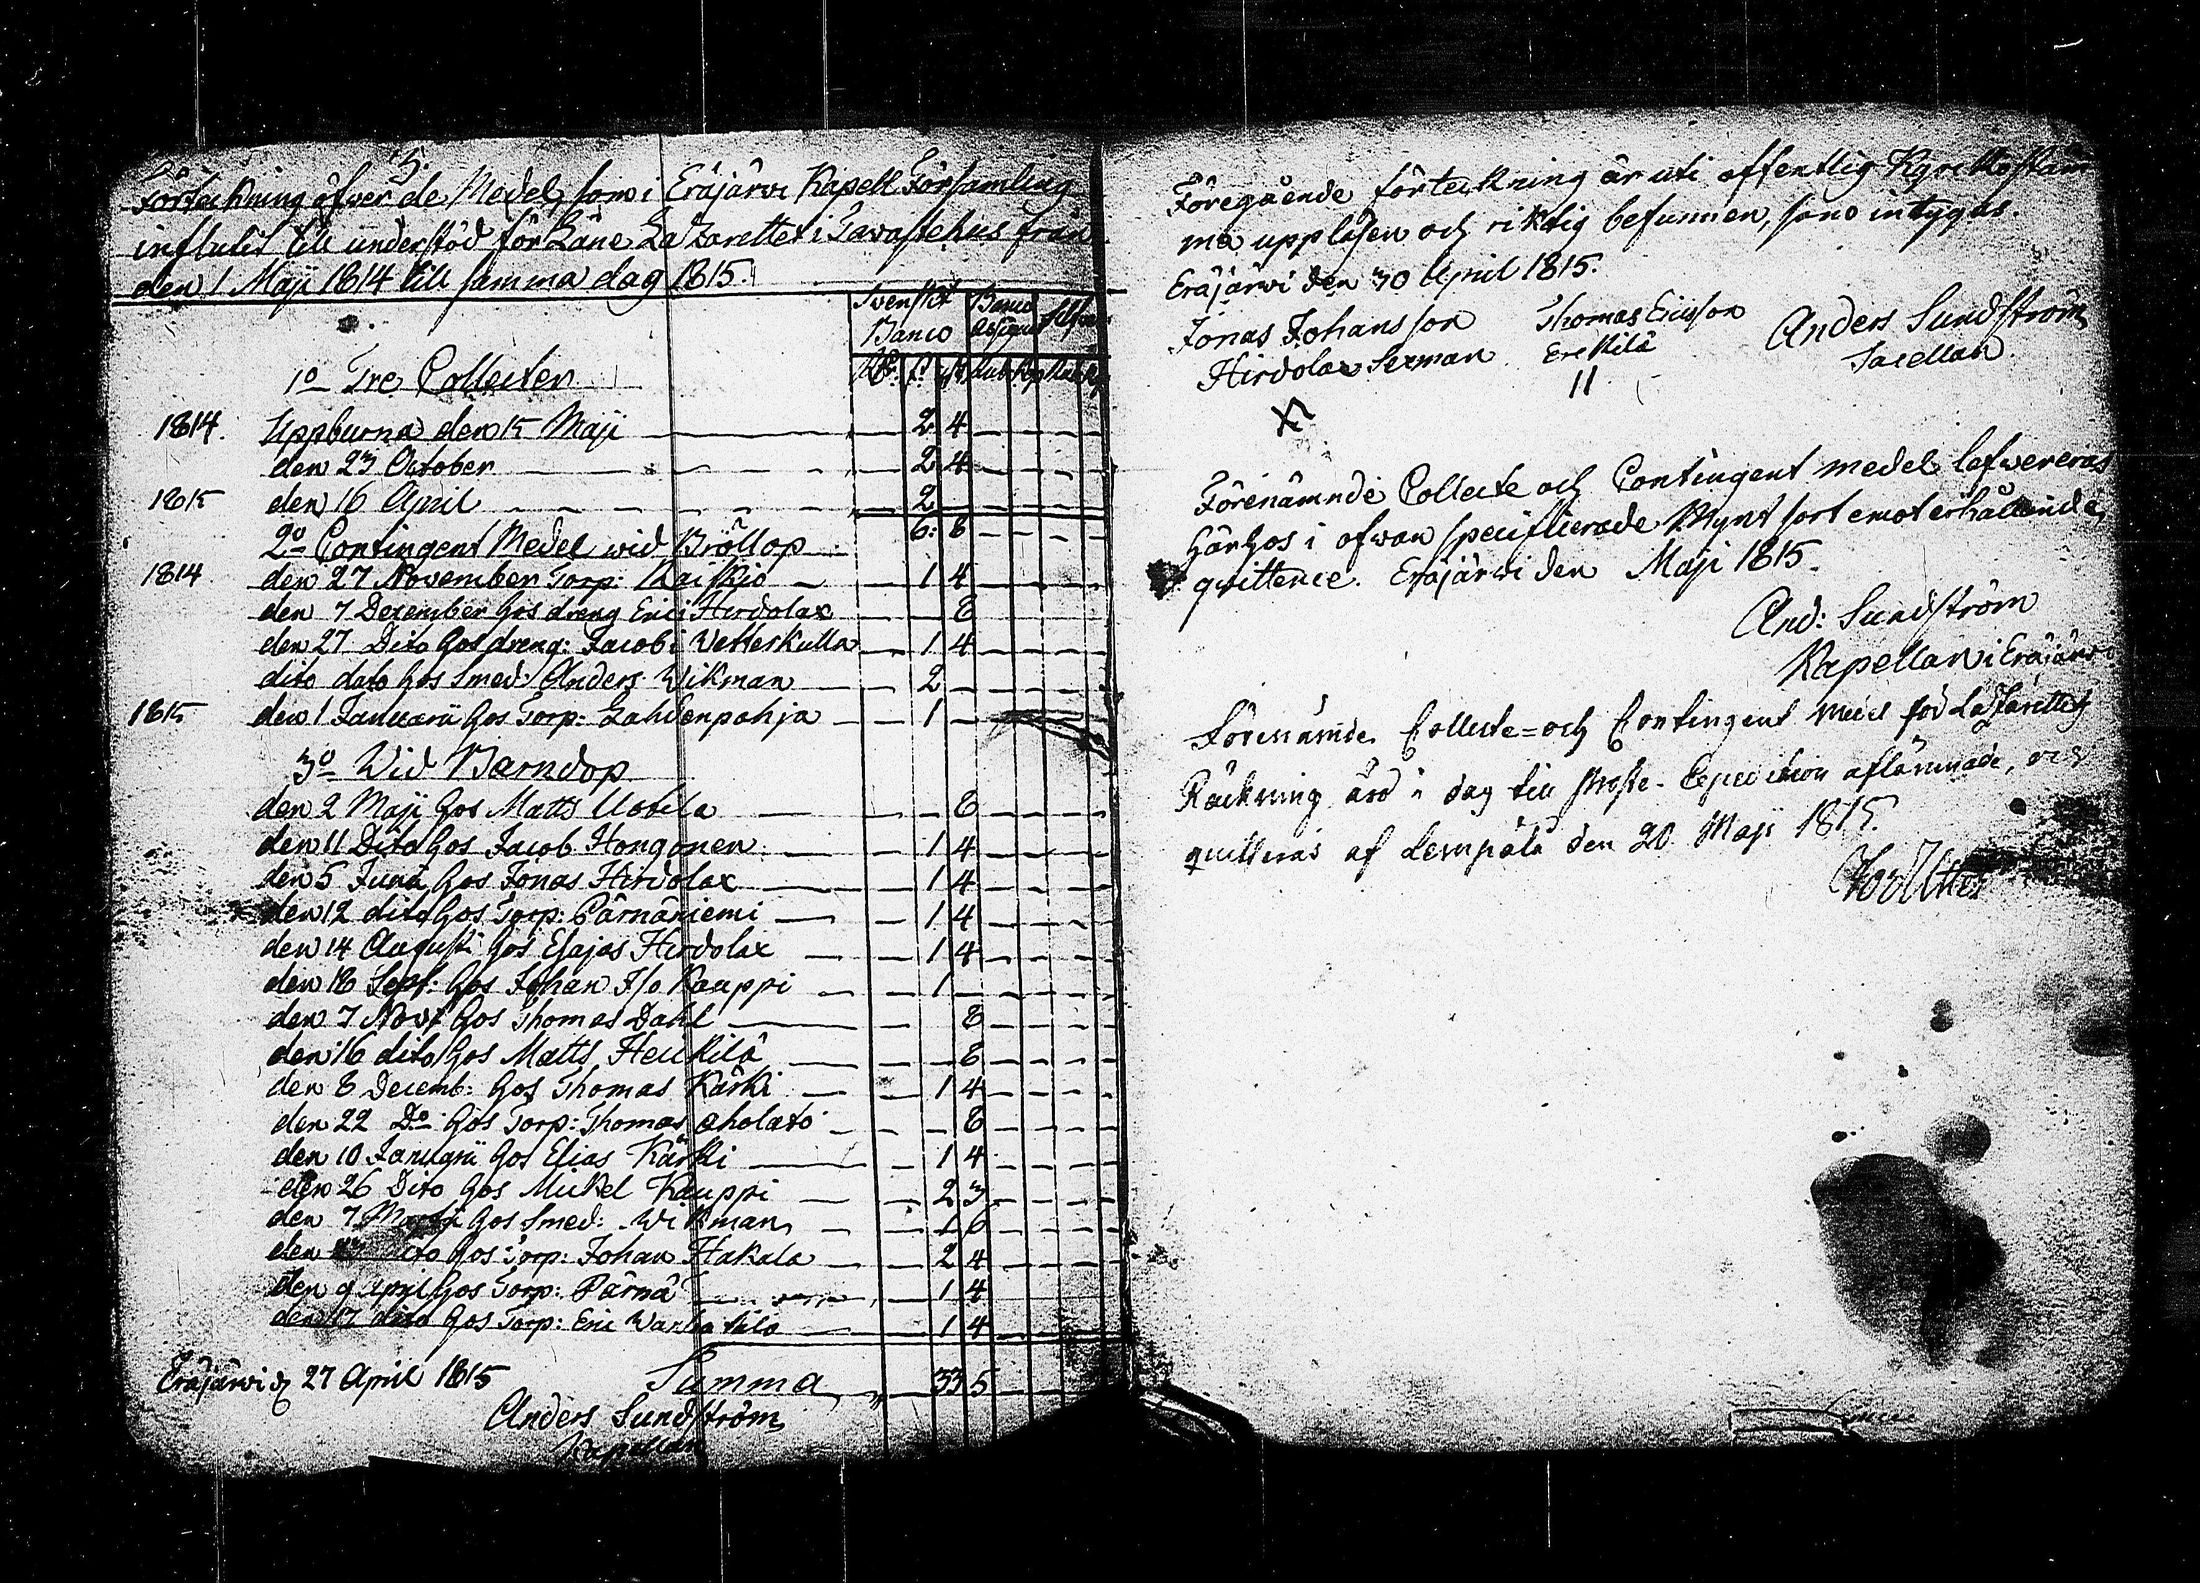 5.
Förteckning öfwer de Medel, som i Eräjärwi Kapell Församling
influtit till understöd för Läne Lazarettet i Tawastehus från
den 1 Maji 1814 till samma dag 1815.
Swenskt Banco Banco Assign Silfwer
Rd. s. rst Rub Kop Rub Kop
1o Tre Collecter
1814. Uppburna den 15 Maji 2 4
den 23 October 2 4
1815 den 16 April 2
6: 8
2o Contingent Medel wid Bröllop
1814 den 27 November Torp: Kaiskio 1 4
den 7 December hos dreng Eric Hirdolax 8
den 27 Dito hos dreng: Jacob i Wetteskulla 1 4
dito dato hos Smed: Anders Wikman 2
1815 den 1 Januarii hos Torp: Lahdenpohja 1
3o Wid Barndop
den 2 Maji hos Matts Uotila 8
den 11 Dito hos Jacob Hongonen 1 4
den 5 Junii hos Jonas Hirdolax 1 4
den 12 dito hos Torp: Pärnäniemi 1 4
den 14 Augusti hos Esajas Hirdolax 1 4
den 18 Sept: hos Johan J/o Kauppi 1
den 7 Novr hos Thomas Dahl 8
den 16 dito hos Matts Heickilä 8
den 8 Decemb: hos Thomas Kärki 1 4
den 22 Do hos Torp: Thomas Aholato 8
den 10 Januarii hos Elias Kärki 1 4
den 26 Dito hos Mickel Kauppi 2 3
den 7 Martii hos Smed: Wikman 1 6
den dito hos Torp: Johan Hakala 2 4
den 9 April hos Torp: Pärnä 1 4
den 17 dito hos Torp: Eric 1 4
Eräjärwi d 27 April 1815 Summa 33 5
Anders Sundström
Kapellan
Föregående förteckning är uti offentlig Kyrkostäm
ma uppläsen och riktig befunnen, som intygas.
Eräjärwi den 30 April 1815.
Jonas Johansson Thomas Ericsson Anders Sundström
Hirdolax Sexman Erckilä Sacellan.
Förenämnde Collecte och Contingent medel lefwereras
härhos i ofwan specificerade Mynt sort emot erhållande
quittence. Eräjärwi den Maji 1815.
And: Sundström
Kapellan i Eräjärwi
Förenämde Collecte= och Contingent medel för Lazarettets
Räckning äro i dag till Proste-Expedition aflämnade, och
quitteras af Lempälä den 20 Maji 1815.